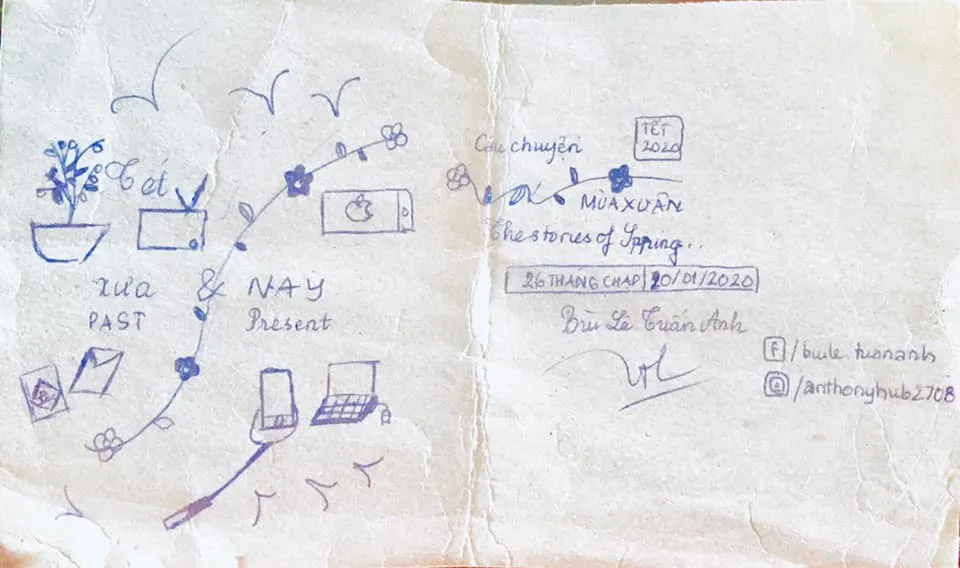 Tết
xưa & NAY
PAST Present
Câu chuyện
TẾT
2020
MÙA XUÂN
The stories of Spring..
26 THÁNG CHẠP 20/01/2020
Bùi Lê Tuấn Anh
f /buile.tuananh
/anthonyhub2708